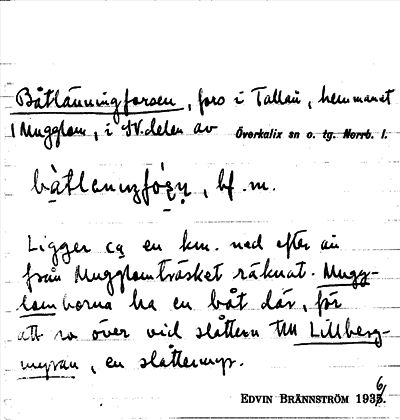 Båtlänningforsen, fors i Tallån, hemmanet
Mugglom, i SV. delen av Överkalix sn o. tg. Norrb. l.
, bf. m.
Ligger ca en km. ned efter ån
från Mugglomträsket räknat. Mugg-
lomborna ha en båt där, för
att ro över vid slåttern till Lillberg-
myran, en slåttermyr.
EDVIN BRÄNNSTRÖM 1936.